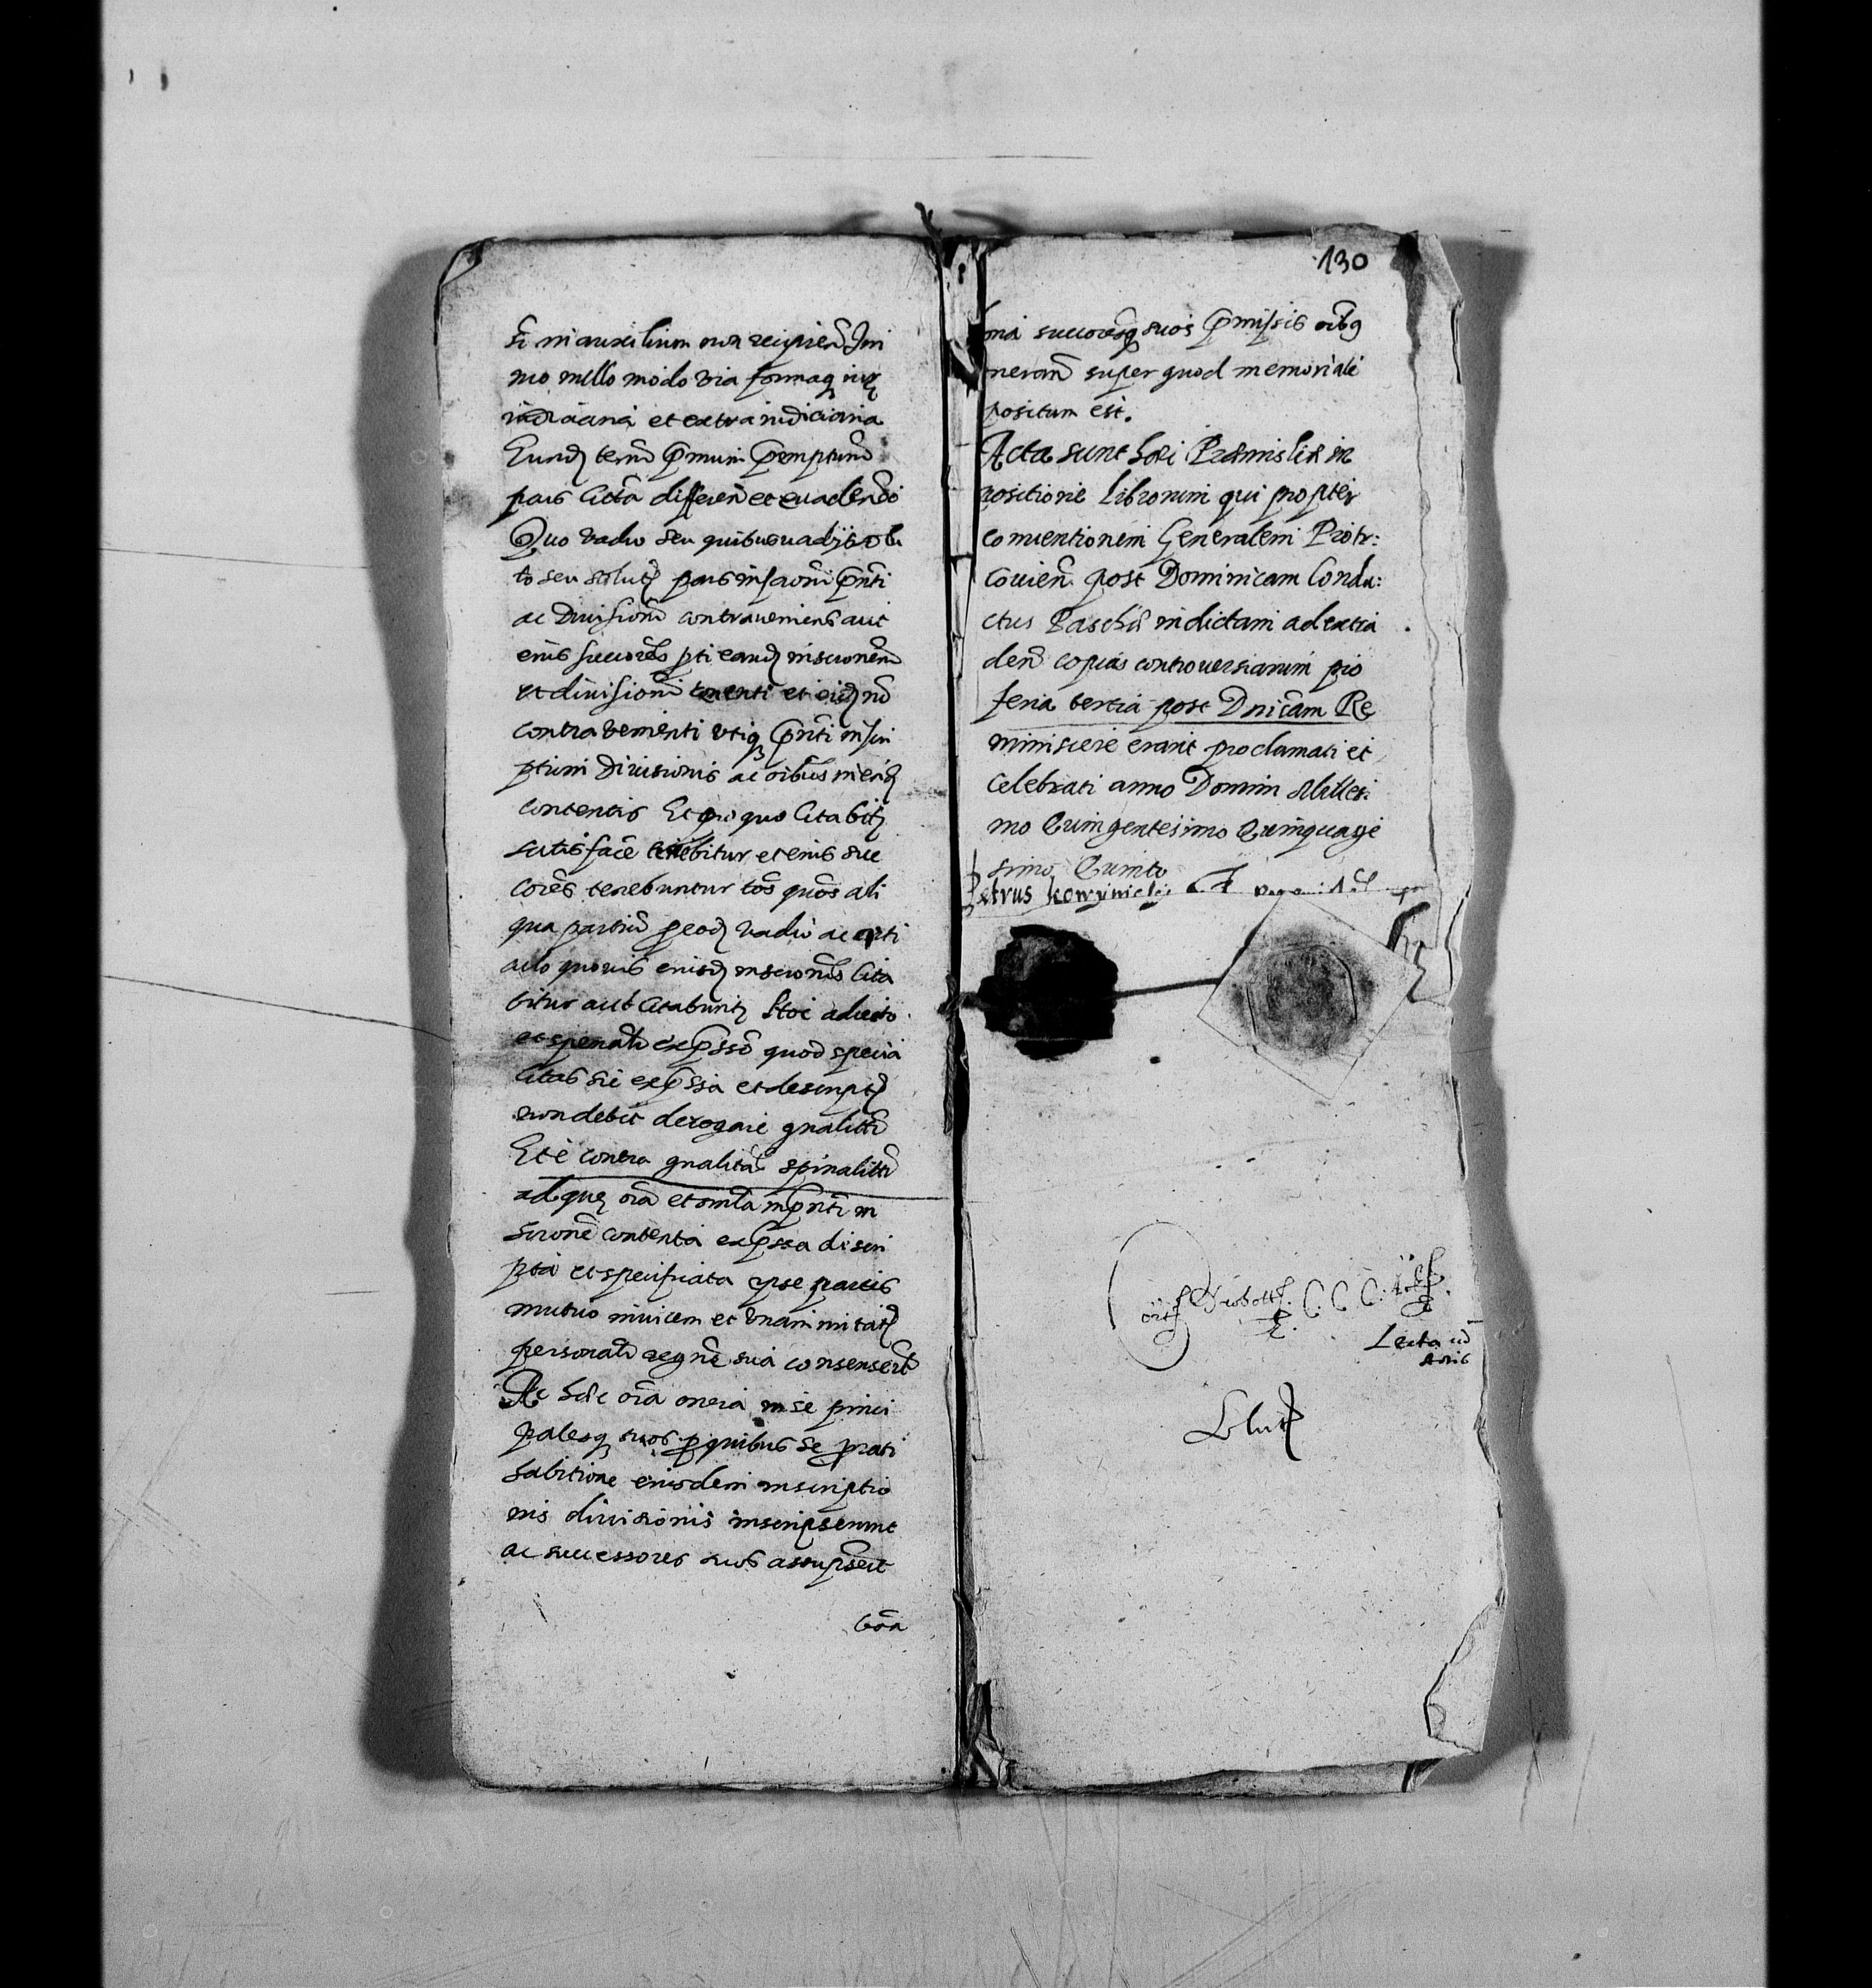 in auxilium non recipien Imi
mo nullo modo via formaq iur
iudiciaria et extraiudiciaria
Eund term pmum pemptum
pars citta differen et evadendo
Quo vadio seu quibus vadijs solu
to seu solut pars inscroni pnti
ac divisioni contraveniens aut
eius succores pti eand inscronem
et divisioni tenenti et eid no
contravenienti utiq pnti inscri
ptioni Divisionis ac oibus in ead
contentis Et pro quo Citabit
satisface tenebitur et eius suc
cores tenebuntur tos quos ali
qua partiu p eod vadio ac
aclo quovis eiusd inscronis Cita
bitur aut Citabunt Hoc adiecto
et specualr expsso quod specia
litas sic expssa et descripta
non debet derogare gnalitti
Et e contra gnalitas spinalitti
ad que oia et sinla in pnti in
scrone contenta expssa discri
pta et specificata ipse partes
mutuo invicem et unanimitatr
personalr necno sua consenserut
Ac hec oia onera in se princi
palesq suos p quibus se prati
habitione eiusdem inscriptio
nis divisionis inscripserunt
ac successores suos assupserut
bona
130
bona succoresq suos pmissis oibq
oneran super quod memoriale
positum est.
Acta sunt hec Premisliae in
positione Librorum qui propter
conventionem Generalem Piotr:
covien post Dominicam Condu:
ctus Paschae indictam ad extra
den copias controversiarum pro
feria tertia post Dnicam Re
miniscere erant proclamati et
celebrati anno Domini Milles:
mo Quingentesimo Quinquage
simo Quinto
Petrus
Lecta cu
Actis